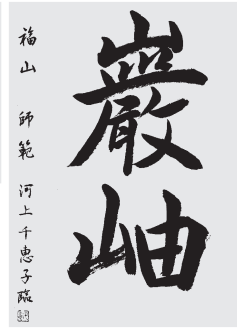 巖岫
福山 師範 河上千恵子臨